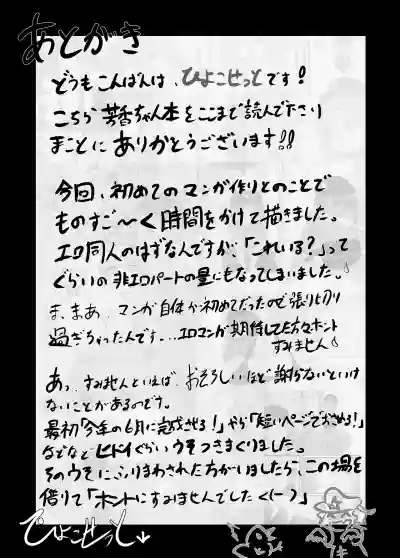 あとがき
どうもこんばんは、ひよこせっとです!
こちら芳香ちゃん本をここまで読んで下さり
まことにありがとうございます!!
今回、初めてのマンガ作りとのことで
ものすご〜く時間をかけて描きました。
エロ同人のはずなんですが、「これいる?」って
ぐらいの非エロパートの量にもなってしまいました。
ま、まあ、マンガ自体が初めてだったので張り切り
過ぎちゃったんです...エロマンガ期待してた方々ホント
すみません
あっ、すみませんといえば、おそろしいほど謝らないといけ
ないことがあるのです。
最初「今年の6月に完成させる!」やら「短いページでおさめる!」
などなどヒドイぐらいウソつきまくりました。
そのウソに、ふりまわされた方がいましたら、この場を
借りて「ホントにすみませんでした<(--)」
ひよこせっと